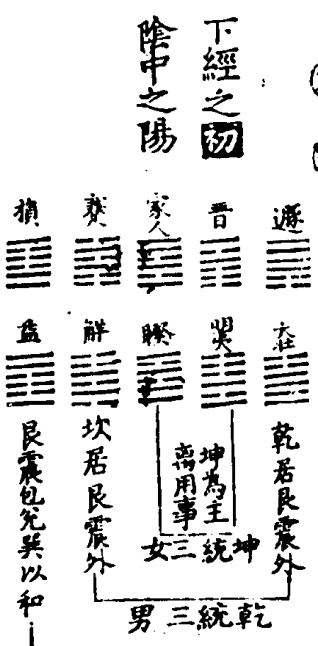 下經之初
陰中之陽
遯 晉 家人 蹇 損
大壯 明夷 睽 解 益
乾居艮震外
坤為主
离用事
坎居艮震外
艮震包兌巽以和
坤統三女
乾統三男